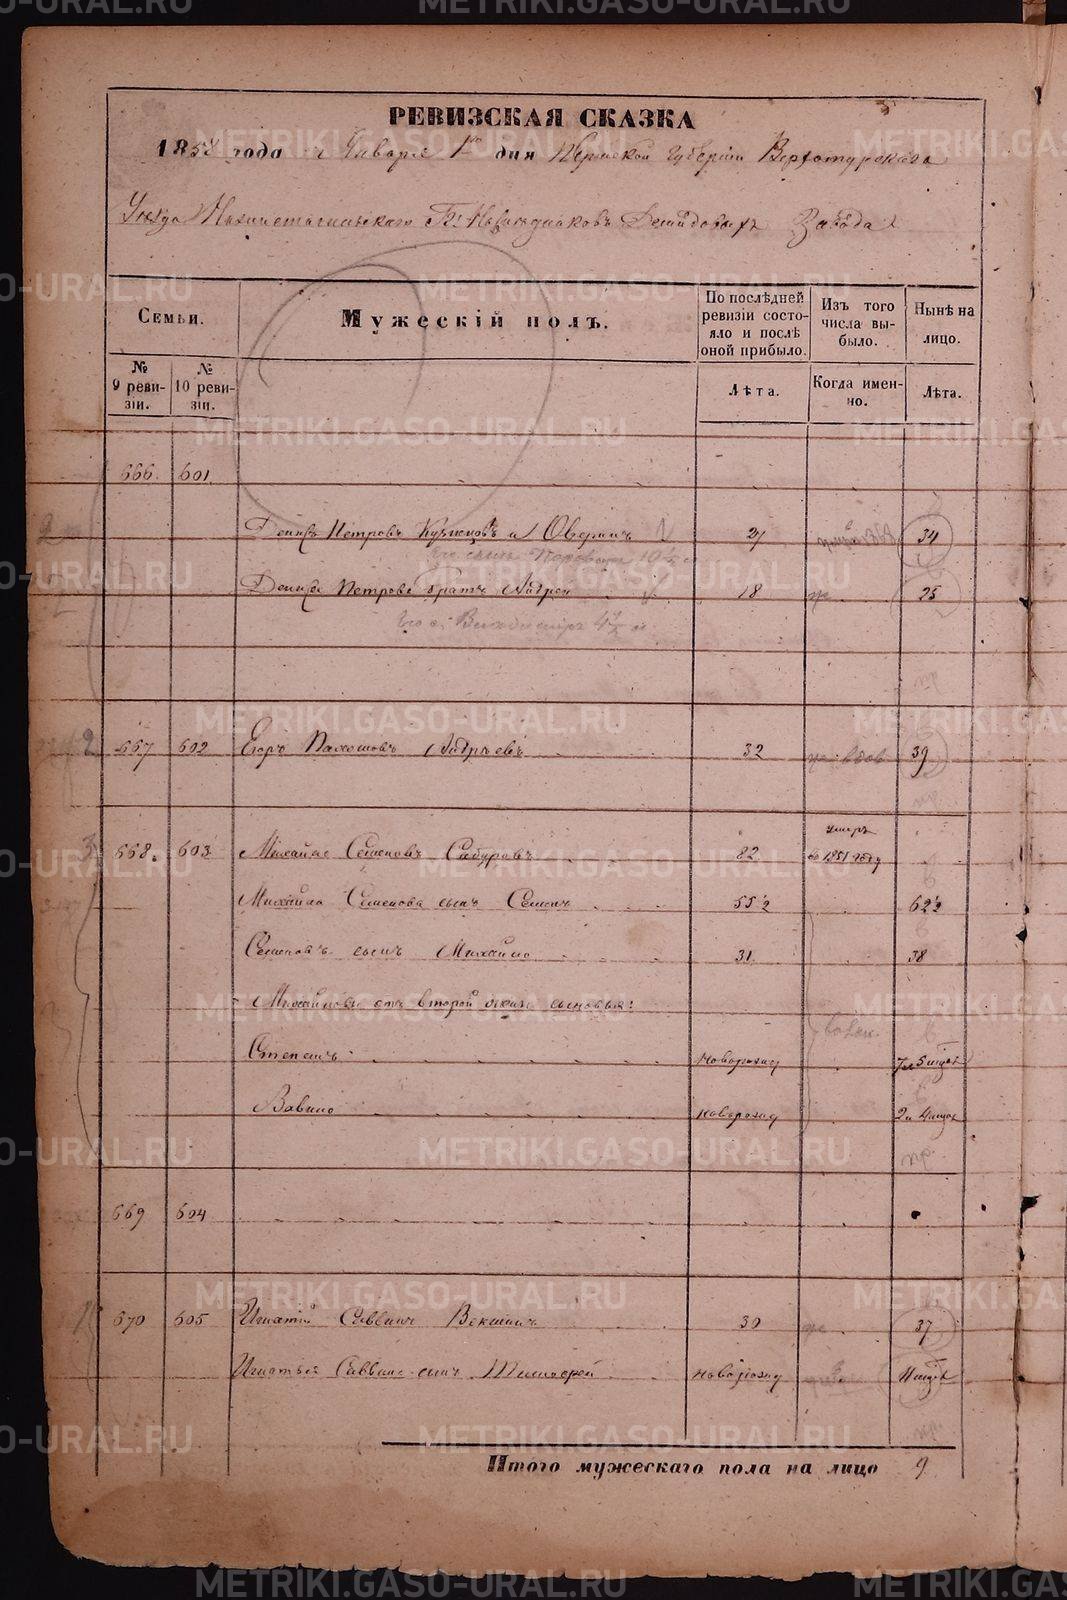 METRIKI.GASO-URAL.RU
РЕВИЗСКАЯ СКАЗКА
1858 года Генваря 1го дня Пермской Губернiи Верхотурскаго
Уѣзда Нижнетагильскаго Гг. Наслѣдниковъ Демидовыхъ Завода
Семьи.
Мужескiй полъ.
По послѣдней ревизiи состояло и послѣ оной прибыло.
Изъ того числа выбыло.
Нынѣ на лицо.
№ 9 ревизiи.
№ 10 ревизiи.
Лѣта.
Когда именно.
Лѣта.
666. 601
Денисъ Петровъ Кузнецовъ и Оверинъ 27 34
его сынъ 10½
Дениса Петрова братъ Андрей 18 25
Его с. 4½
667 602 Егоръ Пахомовъ Андрѣевъ 32 вдов 39
668. 603 Михайло Семеновъ Сабуровъ 82 умеръ въ 1851 году
Михайло Семенова сынъ Семенъ 55½ 62½
Семеновъ сынъ Михайло 31 38
Михайловы отъ второй жены сыновья:
Степанъ новорожд 7 и 5 мцев
Вавило новорожд 2 и 4 мцев
669 604
670 605 Игнатiй Саввинъ Векшинъ 30 37
Игнатья Саввина сынъ Тимофей новорожд 11 мцев
Итого мужескаго пола на лицо 9